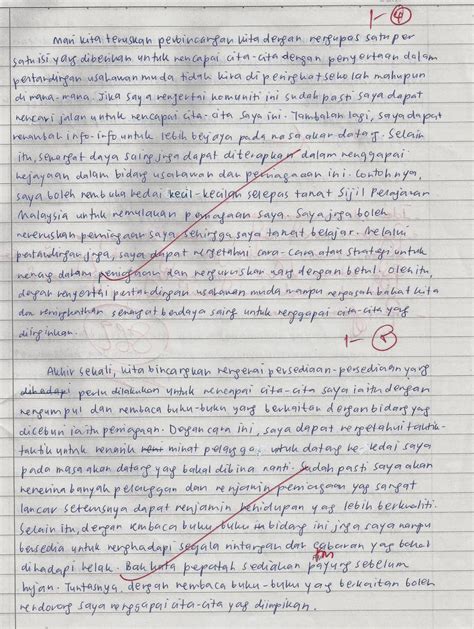 1-④
Mari kita teruskan perbincangan kita dengan mengupas satu per
satu isi yang diberikan untuk mencapai cita-cita dengan penyertaan dalam
pertandingan usahawan muda tidak kira di peringkat sekolah mahupun
di mana-mana. Jika saya menyertai komuniti ini sudah pasti saya dapat
mencari jalan untuk mencapai cita-cita saya ini. Tambahan lagi, saya dapat
menambah info-info untuk lebih berjaya pada masa akan datang. Selain
itu, semangat daya saing juga dapat diterapkan dalam menggapai
kejayaan dalam bidang usahawan dan perniagaan ini. Contohnya,
saya boleh membuka kedai kecil-kecilan selepas tamat Sijil Pelajaran
Malaysia untuk memulakan perniagaan saya. Saya juga boleh
meneruskan perniagaan saya sehingga saya tamat belajar. Melalui
pertandingan juga, saya dapat mengetahui cara-cara atau strategi untuk
menang dalam perniagaan dan menguruskan yang dengan betul. Oleh itu,
dengan menyertai pertandingan usahawan muda mampu mengasah bakat kita
dan meningkatkan semangat berdaya saing untuk menggapai cita-cita yang
diinginkan.
1-
Akhir sekali, kita bincangkan mengenai persediaan-persediaan yang
dihadapi perlu dilakukan untuk mencapai cita-cita saya iaitu dengan
mengumpul dan membaca buku-buku yang berkaitan dengan bidang yang
diceburi iaitu perniagaan. Dengan cara ini, saya dapat mengetahui taktik-
taktik untuk menarik minat pelanggan untuk datang ke kedai saya
pada masa akan datang yang bakal dibina nanti. Sudah pasti saya akan
menerima banyak pelanggan dan menjamin perniagaan yang sangat
lancar seterusnya dapat menjamin kehidupan yang lebih berkualiti.
Selain itu, dengan membaca buku-buku bidang ini juga saya mampu
bersedia untuk menghadapi segala rintangan dan cabaran yang bakal
dihadapi kelak. Bak kata pepatah sediakan payung sebelum
hujan. Tuntasnya, dengan membaca buku-buku yang berkaitan boleh
mendorong saya menggapai cita-cita yang diimpikan.